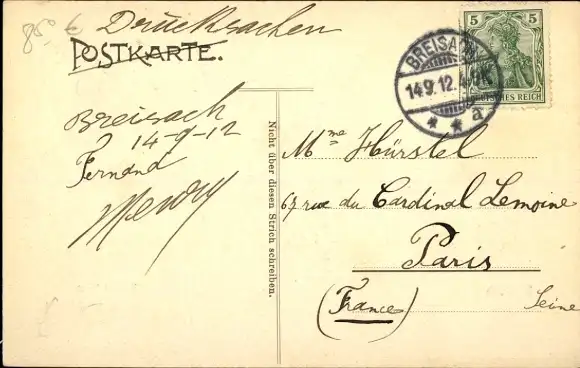 85.- €
Drucksachen
POSTKARTE.
5 5
DEUTSCHES REICH
BREISACH
14.9.12.4-5N.
* * a
Breisach
14-9-12
Fernand
Nicht über diesen Strich schreiben.
Mme Hürstel
67 rue du Cardinal Lemoine
Paris
(France) Seine